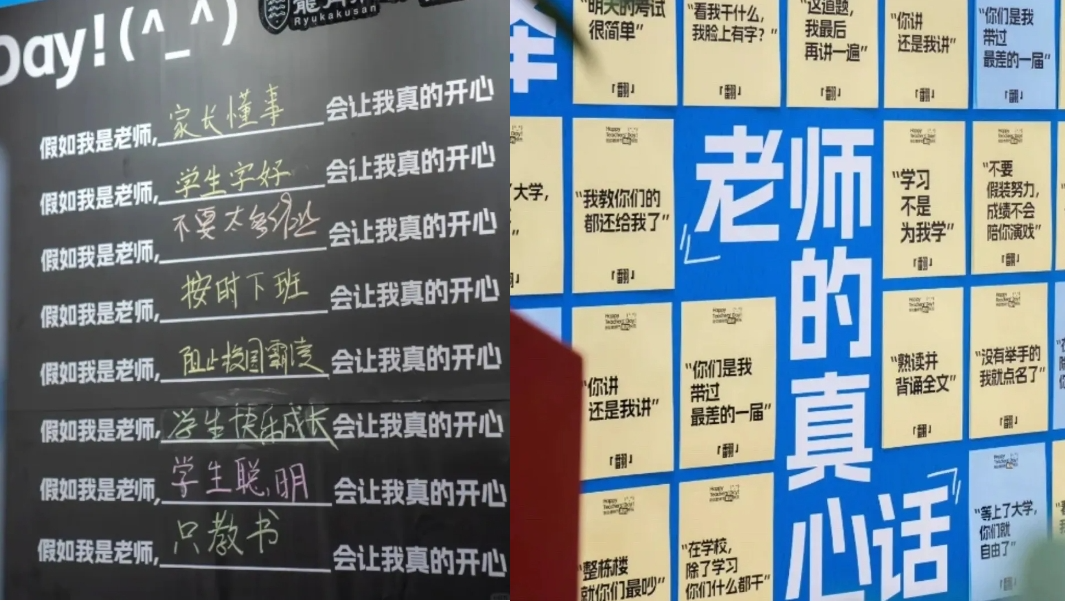 Day!(^_^)
龍角散
Ryukakusan
假如我是老师,家长懂事会让我真的开心
假如我是老师,学生字好会让我真的开心
假如我是老师,不要太多作业会让我真的开心
假如我是老师,按时下班会让我真的开心
假如我是老师,阻止校园霸凌会让我真的开心
假如我是老师,学生快乐成长会让我真的开心
假如我是老师,学生聪明会让我真的开心
假如我是老师,只教书会让我真的开心
“明天的考试
很简单”
「翻」
“看我干什么,
我脸上有字?”
「翻」
“这道题,
我最后
再讲一遍”
「翻」
“你讲
还是我讲”
「翻」
“你们是我
带过
最差的一届”
「翻」
大学,
“我教你们的
都还给我了”
「翻」
“学习
不是
为我学”
「翻」
“不要
假装努力,
成绩不会
陪你演戏”
「翻」
『老师
的
真
心话』
“你讲
还是我讲”
「翻」
“你们是我
带过
最差的一届”
「翻」
“熟读并
背诵全文”
「翻」
“没有举手的
我就点名了”
「翻」
“整栋楼
就你们最吵”
“在学校,
除了学习
你们什么都干”
“等上了大学,
你们就
自由了”
「翻」